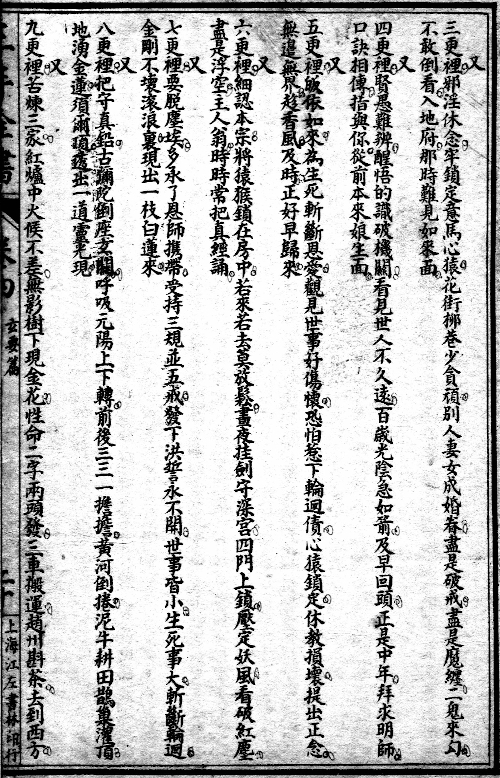 三更裡邪淫休念牢鎖定意馬心猿花街柳巷少貪頑別人妻女成婚眷盡是破戒盡是魔纏二鬼來勾
不敢倒看入地府那時難見如來面
又
四更裡賢愚難辨醒悟的識破機關看見世人不久遠百歲光陰急如箭及早回頭正是中年拜求明師
口訣相傳指與你從前本來娘生面
又
五更裡皈依如來為生死斬斷恩愛觀見世事好傷懷恐怕惹下輪迴債心猿鎖定休教損壞提出正念
無邊無界趁看風及時正好早歸來
又
六更裡細認本宗將猿猴鎖在房中若來若去莫放鬆晝夜挂劍守深宮四門上鎖壓定妖風看破紅塵
盡是浮空主人翁時時常把真經誦
又
七更裡要脫塵埃多承了恩師携帶受持三規並五戒發下洪誓永不開世事皆小生死事大斬斷輪迴
金剛不壞滾浪裏現出一枝白蓮來
又
八更裡把守真鉛古彌陀倒座玄關呼吸元陽上下轉前後三三一擔擔黃河倒捲泥牛耕田鵲巢灌頂
地湧金蓮須彌頂透出一道靈光現
又
九更裡苦煉三家紅爐中火候不差無影樹下現金花性命二字兩頭發三車搬運趙州斟茶去到西方
全書
卷四
玄歌篇
二十
上海江左書林印行